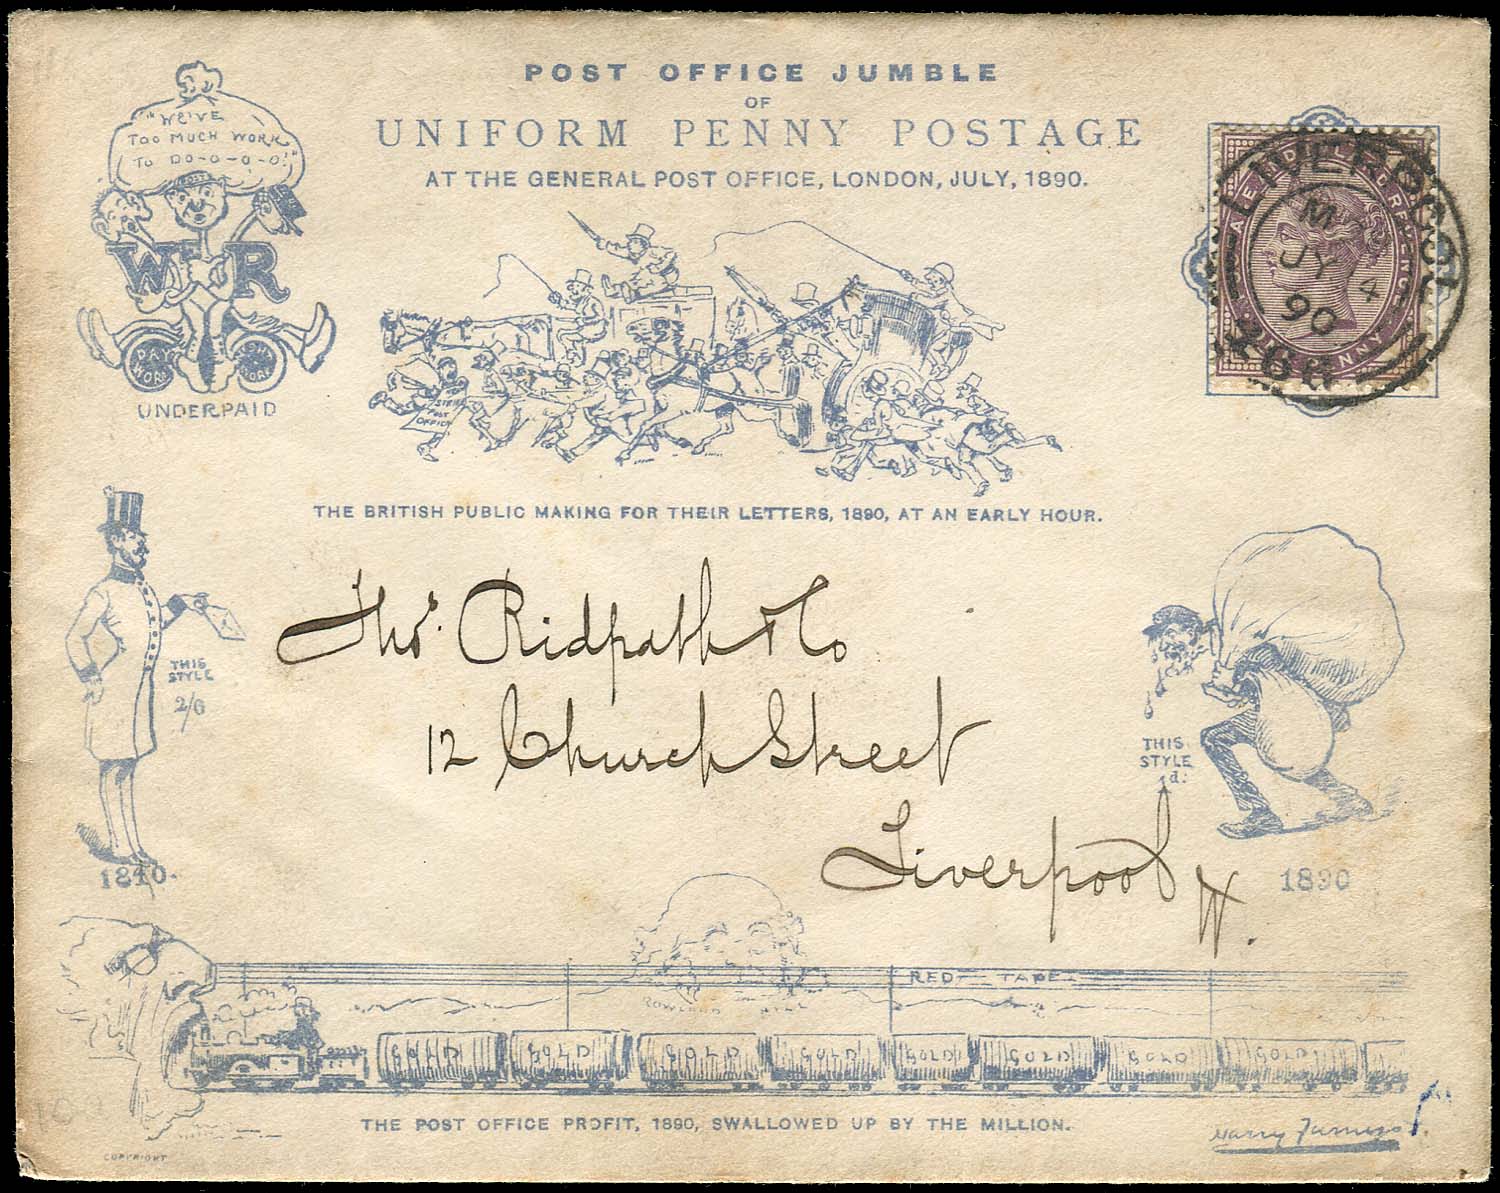 POST OFFICE JUMBLE
OF
UNIFORM PENNY POSTAGE
AT THE GENERAL POST OFFICE, LONDON, JULY, 1890.
"WE'VE
TOO MUCH WORK
TO DO-O-O-O!"
W R
DAY WORK
WORK
UNDERPAID
LIVERPOOL
M
JY 4
90
466
POST
OFFICE
THE BRITISH PUBLIC MAKING FOR THEIR LETTERS, 1890, AT AN EARLY HOUR.
Thos. Ridpath & Co
12 Church Street
Liverpool
W.
THIS
STYLE
2/6
1840.
THIS
STYLE
1d.
1890
RED TAPE
ROWLAND HILL
GOLD GOLD GOLD GOLD GOLD GOLD GOLD GOLD
THE POST OFFICE PROFIT, 1890, SWALLOWED UP BY THE MILLION.
COPYRIGHT
Harry Furniss